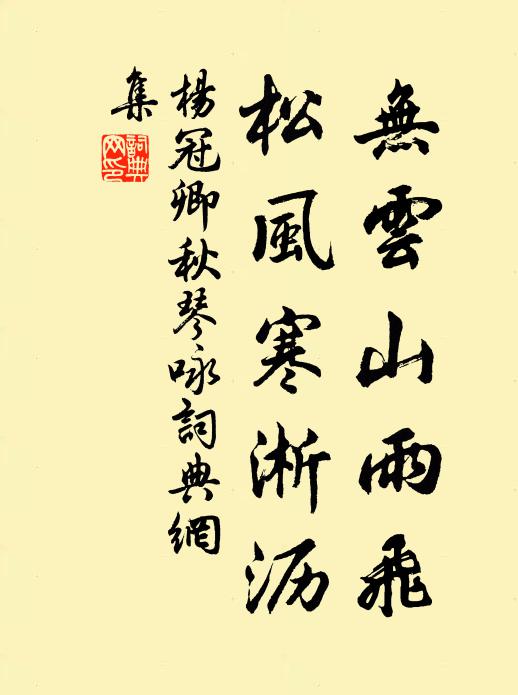 無雲山雨飛
松風寒淅沥
楊冠卿秋琴咏詞典網
集
詞典
网印